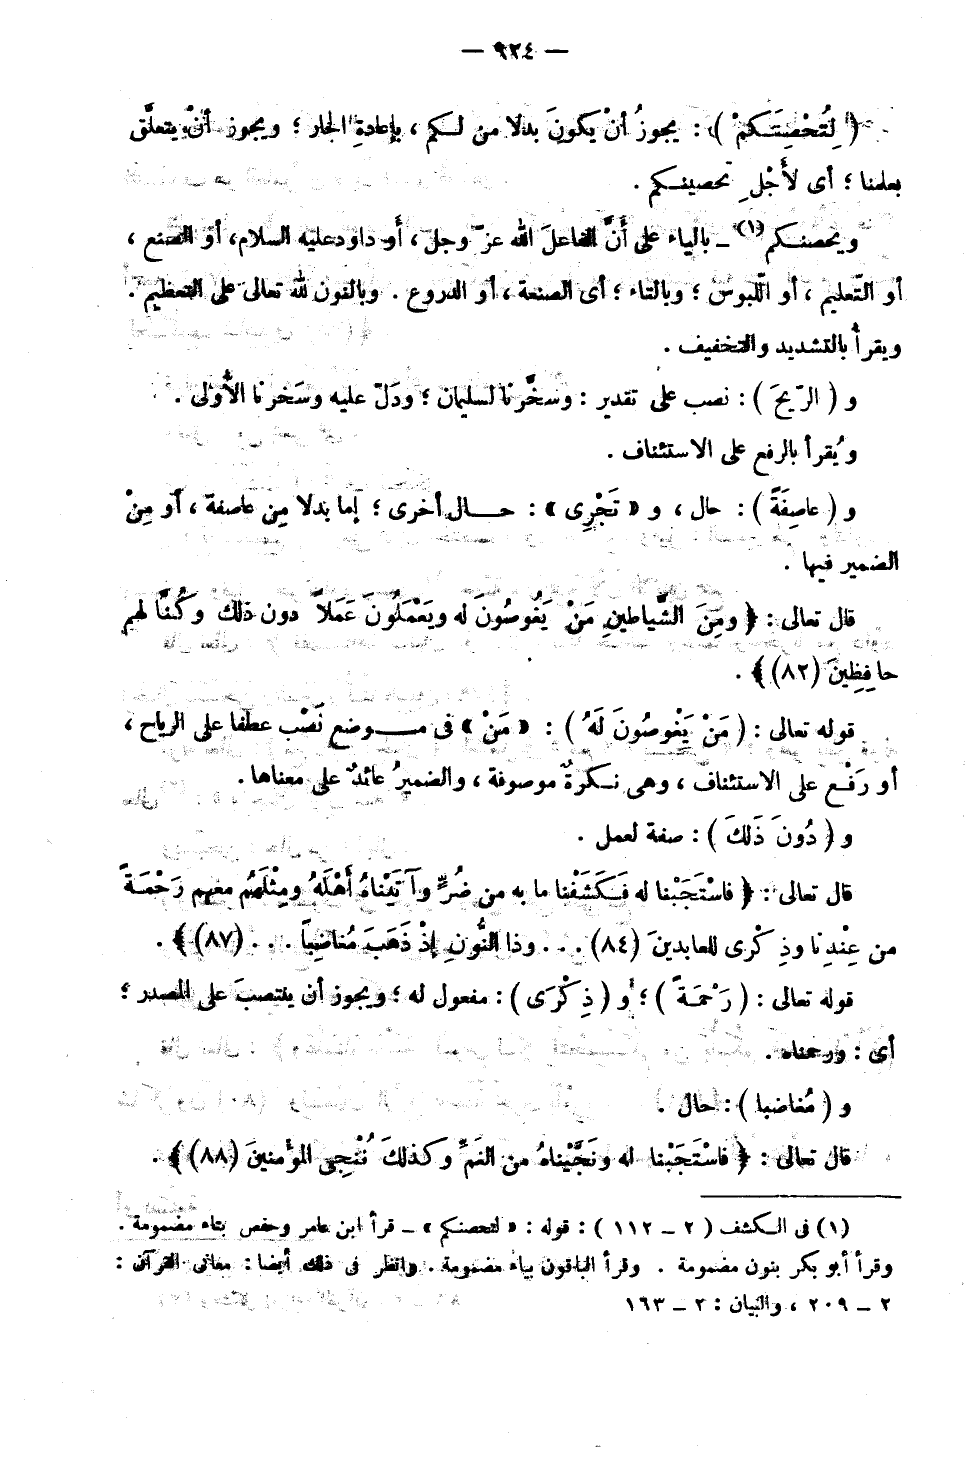 — ٩٢٤ —
( لِتُحْصِنَكمْ ) : يجوزُ أنْ يكونَ بدلا من لكم ، بإعادةِ الجار ؛ ويجوز أنْ يتعلّق
بعلمنا ؛ أى لأَجْلِ تحصينكم .
ويحصنكم(١) ـ بالياء على أَنَّ الفاعلَ الله عزّ وجلّ ، أو داود عليه السلام ، أو الصّنع ،
أو التّعليم ، أو اللّبوس ؛ وبالتاء ؛ أى الصنعة ، أو الدروع . وبالنون لله تعالى على التعظيم .
ويقرأ بالتشديد والتخفيف .
و ( الرّيحَ ) : نصب على تقدير : وسخَّرنا لسليمان ؛ ودَلّ عليه وسَخرنا الأولى .
ويُقرأ بالرفع على الاستئناف .
و ( عاصِفَةً ) : حال ، و « تَجْرِى » : حـال أخرى ؛ إما بدلا مِن عاصفة ، أو مِنْ
الضمير فيها .
قال تعالى : ﴿ ومِنَ الشَّياطينِ مَنْ يَغُوصُونَ له ويَعْمَلُونَ عَمَلاً دون ذلك وكُنَّا لهم
حافِظِينَ (٨٢) ﴾ .
قوله تعالى : ( مَنْ يَغُوصُونَ لَهُ ) : « مَنْ » فى موضع نَصْب عطفا على الرياح ،
أو رَفْع على الاستئناف ، وهى نكرةٌ موصوفة ، والضميرُ عائدٌ على معناها .
و ( دُونَ ذَلكَ ) : صفة لعمل .
قال تعالى : ﴿ فاسْتَجَبْنا له فَكَشَفْنا ما به من ضُرٍّ وآتَيْناهُ أَهْلَهُ ومِثْلَهُم معهم رَحْمَةً
من عِنْدِنا وذِكْرى للعابدينَ (٨٤) ... وذا النُّونِ إذْ ذَهَبَ مُغاضِباً ... (٨٧) ﴾ .
قوله تعالى : ( رَحْمَةً ) ؛ و ( ذِكْرَى ) : مفعول له ؛ ويجوز أن ينتصبَ على المصدر ؛
أى : ورحمناه .
و ( مُغاضبا ) : حال .
قال تعالى : ﴿ فاسْتَجَبْنا له ونَجَّيْناهُ من الغَمِّ وكذلكَ نُنْجِى المؤمنينَ (٨٨) ﴾ .
(١) فى الكشف ( ٢ ـ ١١٢ ) : قوله : « لتحصنكم » ـ قرأ ابن عامر وحفص بتاء مضمومة .
وقرأ أبو بكر بنون مضمومة . وقرأ الباقون بياء مضمومة . وانظر فى ذلك أيضا : معانى القرآن :
٢ ـ ٢٠٩ ، والبيان : ٢ ـ ١٦٣